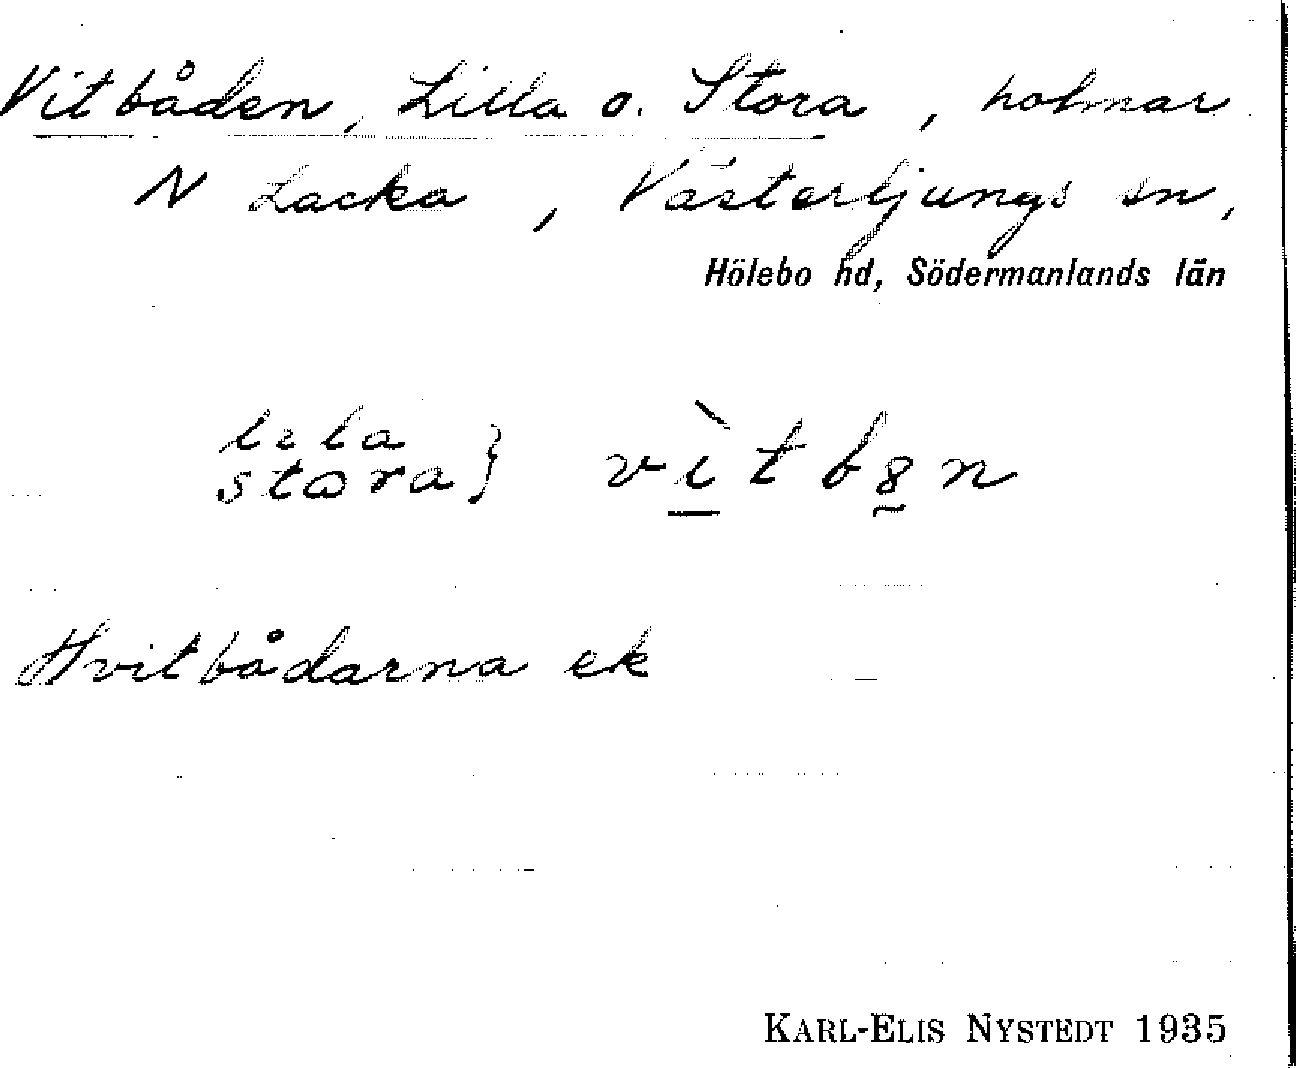 Vitbåden, Lilla o. Stora, holmar
N Lacka, Västerljungs sn,
Hölebo hd, Södermanlands län
lɩla
stɷra } vìtb8n
Hvitbådarna ek
KARL-ELIS NYSTEDT 1935